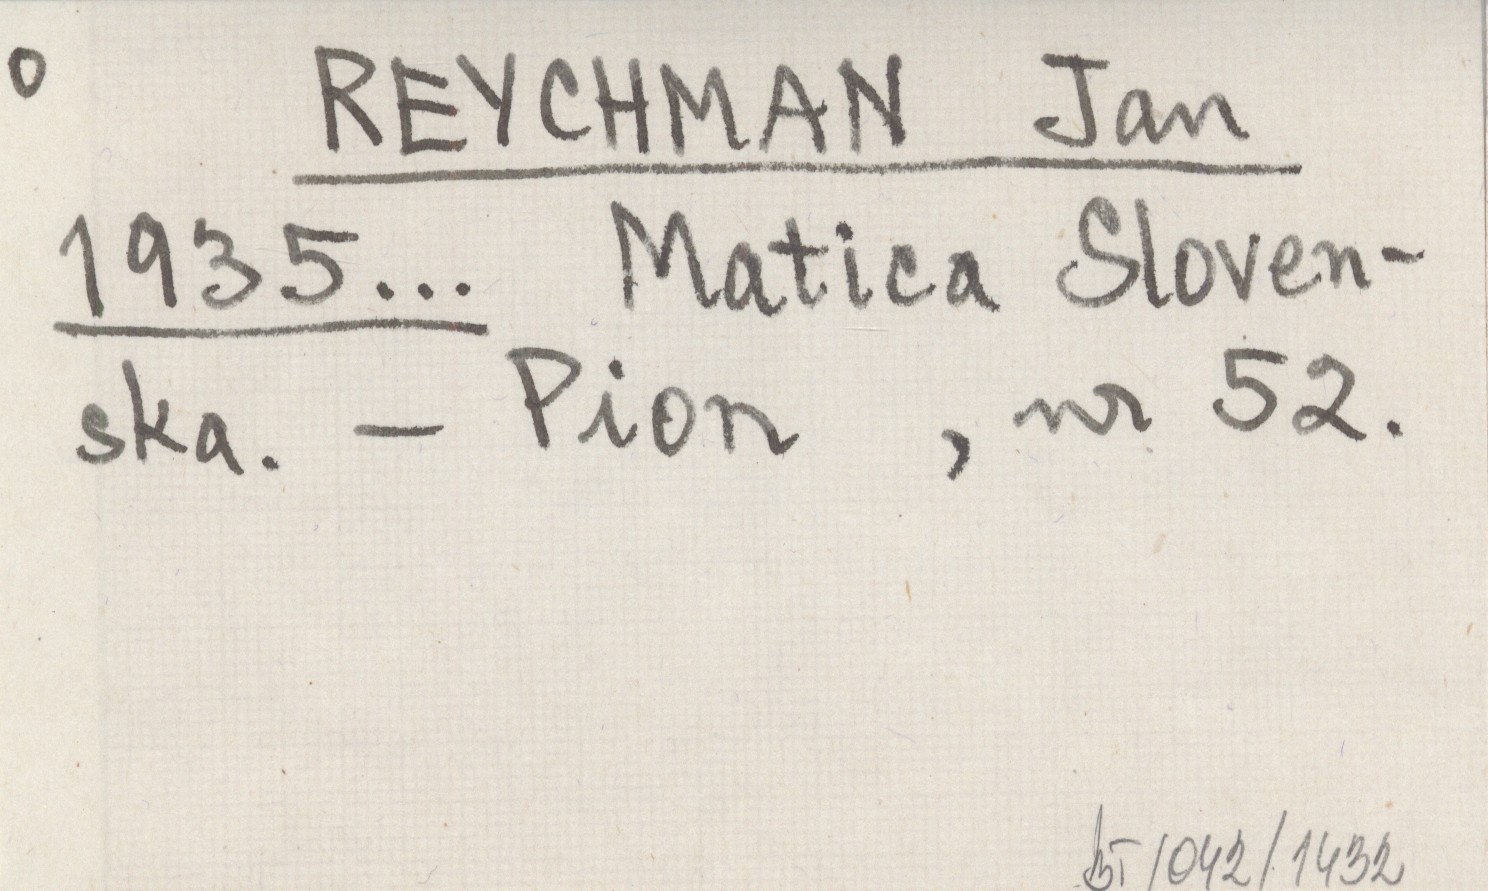 o REYCHMAN Jan
1935... Matica Sloven-
ska. – Pion , nr 52.
bT/042/1432